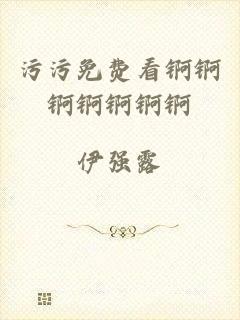 污污免费看锕锕
锕锕锕锕锕
伊强露